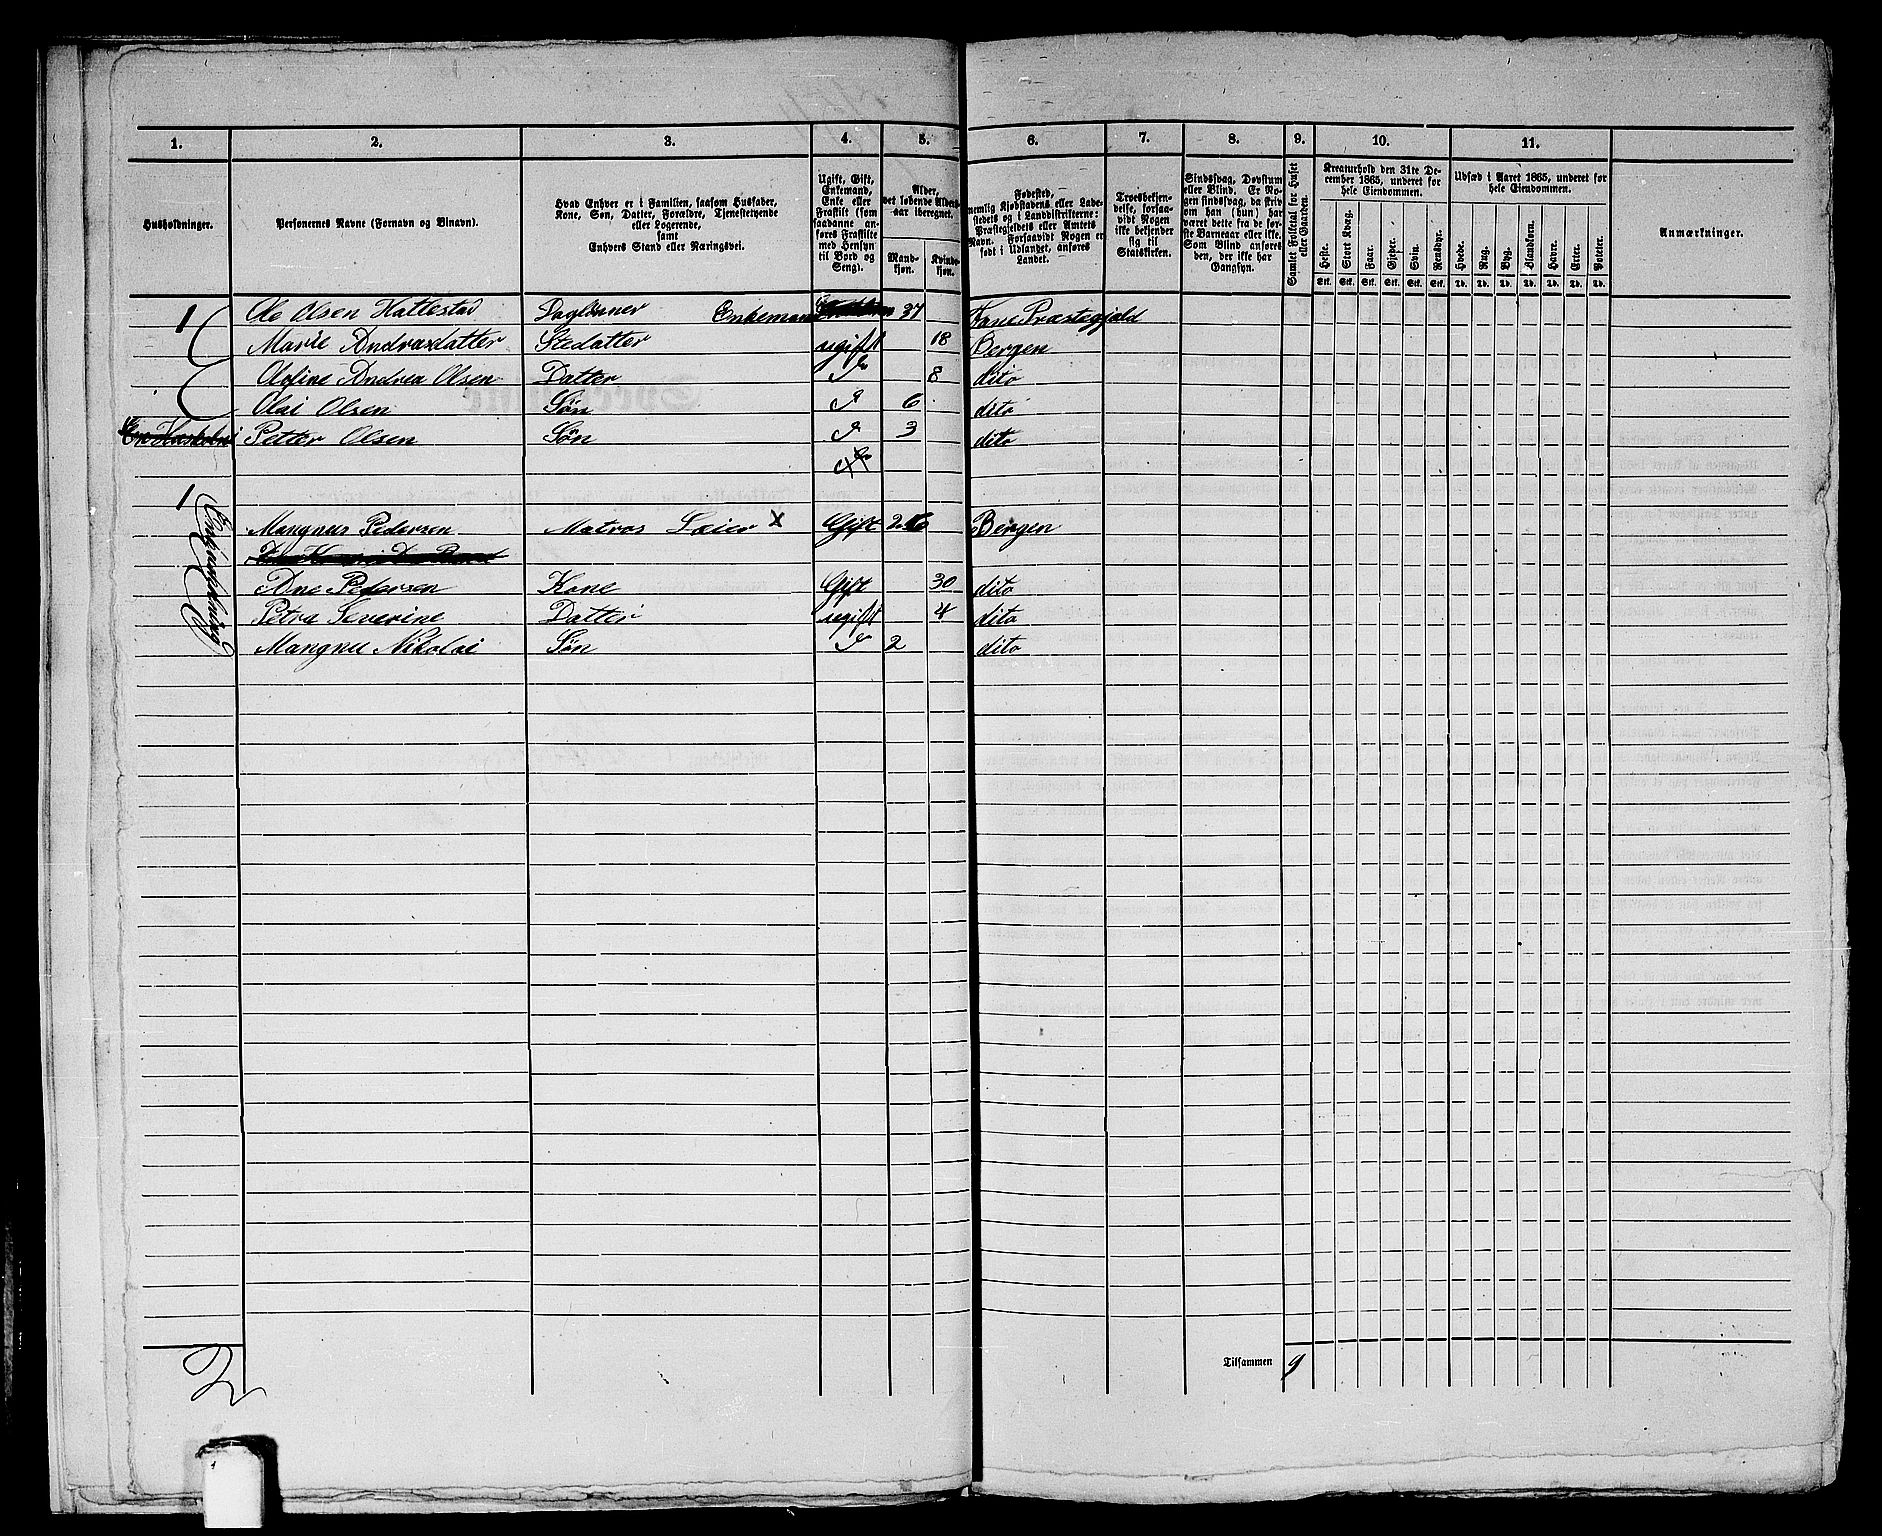 1. 2. 3. 4. 5. 6. 7. 8. 9. 10. 11.
Husholdninger.
Personernes Navne (Fornavn og Binavn).
Hvad Enhver er i Familien, saasom Husfader,
Kone, Søn, Datter, Forældre, Tjenestetyende
eller Logerende,
samt
Enhvers Stand eller Næringsvei.
Ugift, Gift,
Enkemand,
Enke eller
Fraskilt (som
saadanne an-
føres Fraskilte
med Hensyn
til Bord og
Seng).
Alder,
det løbende Alders-
aar iberegnet.
Mand-
kjøn.
Kvinde-
kjøn.
Fødested,
nemlig Kjøbstadens eller Lade-
stedets og i Landdistrikterne:
Præstegjeldets eller Amtets
Navn. Forsaavidt Nogen er
født i Udlandet, anføres
Landet.
Troesbekjen-
delse, forsaa-
vidt Nogen
ikke bekjender
sig til
Statskirken.
Sindssvag, Døvstum
eller Blind. Er No-
gen sindssvag, da skriv
om han (hun) har
været dette fra de før-
ste Barneaar eller ikke.
Som Blind anføres
den, der ikke har
Gangsyn.
Samlet Folketal for Huset
eller Gaarden.
Kreaturhold den 31te De-
cember 1865, underet for
hele Eiendommen.
Heste. Stort Kvæg. Faar. Gjeder. Svin. Rensdyr.
Stk. Stk. Stk. Stk. Stk. Stk.
Udsæd i Aaret 1865, underet for
hele Eiendommen.
Hvede. Rug. Byg. Blandkorn. Havre. Erter. Poteter.
Td. Td. Td. Td. Td. Td. Td.
Anmærkninger.
1 Ole Olsen Hatlestad Daglønner Enkeman 37 Fane Præstegjald
Marie Andreasdatter Stedatter ugift 18 Bergen
Olefine Andrea Olsen Datter do 8 dito
Olai Olsen Søn do 6 dito
Petter Olsen Søn do 3 dito
1 En Husholdning
Mangnus Pedersen Matros Leier x Gift 26 Bergen
Ane Pedersen Kone Gift 30 dito
Petra Severine Datter ugift 4 dito
Mangnus Nikolai Søn do 2 dito
Tilsammen 9
2